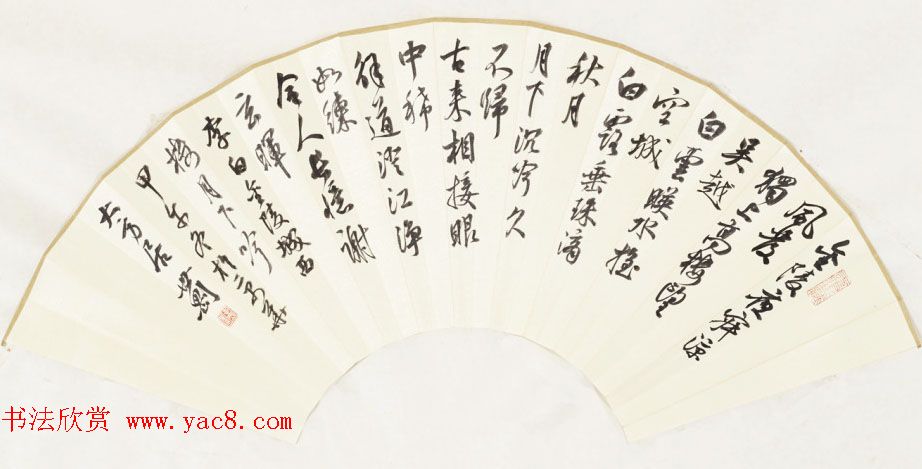 金陵夜寂涼
風發
獨上高楼望
吳越
白雲暎水摇
空城
白露垂珠滴
秋月
月下沉吟久
不歸
古来相接眼
中稀
解道澄江淨
如練
令人长憶謝
玄暉
李白金陵城西
楼月下吟
甲午冬於
书法欣赏 www.yac8.com